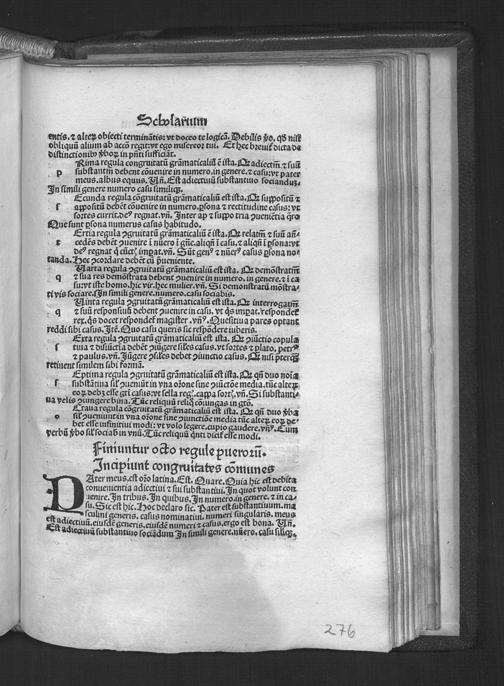 Scholarium
entis. ⁊ alteꝝ obiecti terminātis: vt doceo te logicā. Debilis ꝟo. qꝫ nisi
obliquū alium ab acco regit: vt ego misereor tui. Et hec breuiꝰ dicta de
distinctionibꝰ ꝟboꝝ in pn̄ti sufficiāt.
p Rima regula congruitatū grāmaticaliū ē ista. Qꝫ adiectm̄ ⁊ suū
substantm̄ debent cōuenire in numero. in genere. ⁊ casu: vt pater
meus. albus equus. Vn̄. Est adiectiuū substantiuo sociandum.
In simili genere numero casu similiqꝫ.
s Ecunda regula cōgruitatū grāmaticaliū est ista. Qꝫ suppositū ⁊
appositū debēt cōuenire in numero. ꝑsona ⁊ rectitudine casus: vt
sortes currit. deꝰ regnat. vn̄. Inter ap ⁊ suppo tria ꝯueniētia q̄ro
Que sunt ꝑsona numerus casus habitudo.
r Ertia regula ꝯgruitatū grāmaticaliū est ista. Qꝫ relatm̄ ⁊ suū an̄
cedēs debēt ꝯuenire
tanda. Hec ꝯcordare debēt cū p̄ueniente.
q Uarta regula ꝯgruitatū grāmaticaliū est ista. Qꝫ demōstratm̄
⁊ sua res demōstrata debent ꝯuenire in numero. in genere. ⁊ ī ca
su: vt iste homo. hic vir. hec mulier. vn̄. Si demonstratū mōstra
ti vis sociare. In simili genere. numero. casu sociabis.
q Uinta regula ꝯgruitatū grāmaticaliū est ista. Qꝫ interrogatm̄
⁊ suū responsiuū debent ꝯuenire in casu. vt qͥs impat. respondet
rex. qͥs docet respondet magister. vn̄. Questiua pares optant
reddi sibi casus. Itē. Quo casu queris sic respōdere iuberis.
s Exta regula ꝯgruitatū grāmaticaliū est ista. Qꝫ ꝯiūctio copula
tiua ⁊ disiūctia debēt ꝯiūgere sil̄es casus. vt sortes ⁊ plato. petrꝰ
⁊ paulus. vn̄. Iūgere ꝯsil̄es debet ꝯiunctio casus. Qꝫ nisi p̄terqꝫ
retinent similem sibi formā.
s Eptima regula ꝯgruitatū grāmaticaliū est ista. Qꝫ qn̄ duo noīa
substātiua sil̄ ꝯueniūt in vna or̄one sine ꝯiūctiōe media. tūc alteꝝ
eoꝝ debꝫ esse gti casus: vt sella regꝭ. cappa sortꝭ. vn̄. Si substanti
ua velis ꝯiungere bina. Tūc reliquū reliqͦ cōiungas in gtō.
o Ctaua regula cōgruitatū grāmaticaliū est ista. Qꝫ qn̄ duo ꝟba
sil̄ ꝯueniūt in vna or̄one sine ꝯiunctiōe media tūc alteꝝ eoꝝ de
bet esse infinitiui modi: vt volo legere. cupio gaudere. vn̄. Cum
verbū ꝟbo sil̄ sociab̄ in vnū. Tūc reliquū qͥnti dicāt esse modi.
Finiuntur octo regule pueroꝝ.
Incipiunt congruitates cōmunes
PAter meus. est or̄o latina. Est. Quare. Quia hic est debita
conuenientia adiectiui ⁊ sui substantiui. In quot volunt con
uenire. In tribus. In quibus. In numero. in genere. ⁊ in ca
su. Sic est hic. Hoc declaro sic. Pater est substantiuum. ma
sculini generis. casus nominatiui. numeri singularis. meus
est adiectiuū. eiusdē generis. eiusdē numeri ⁊ casus. ergo est bona. Vn̄.
Est adiectiuū substantiuo sociādum In simili genere. nūero. casu siliqꝫ.
276